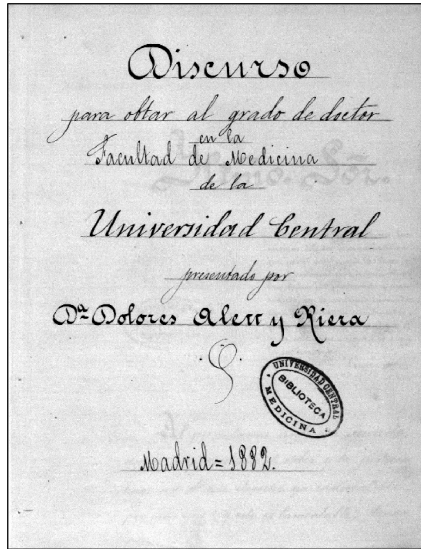 Discurso
para obtar al grado de doctor
en la
Facultad de Medicina
de la
Universidad Central
presentado por
Dª Dolores Aleu y Riera
UNIVERSIDAD CENTRAL
BIBLIOTECA
MEDICINA
Madrid = 1882.